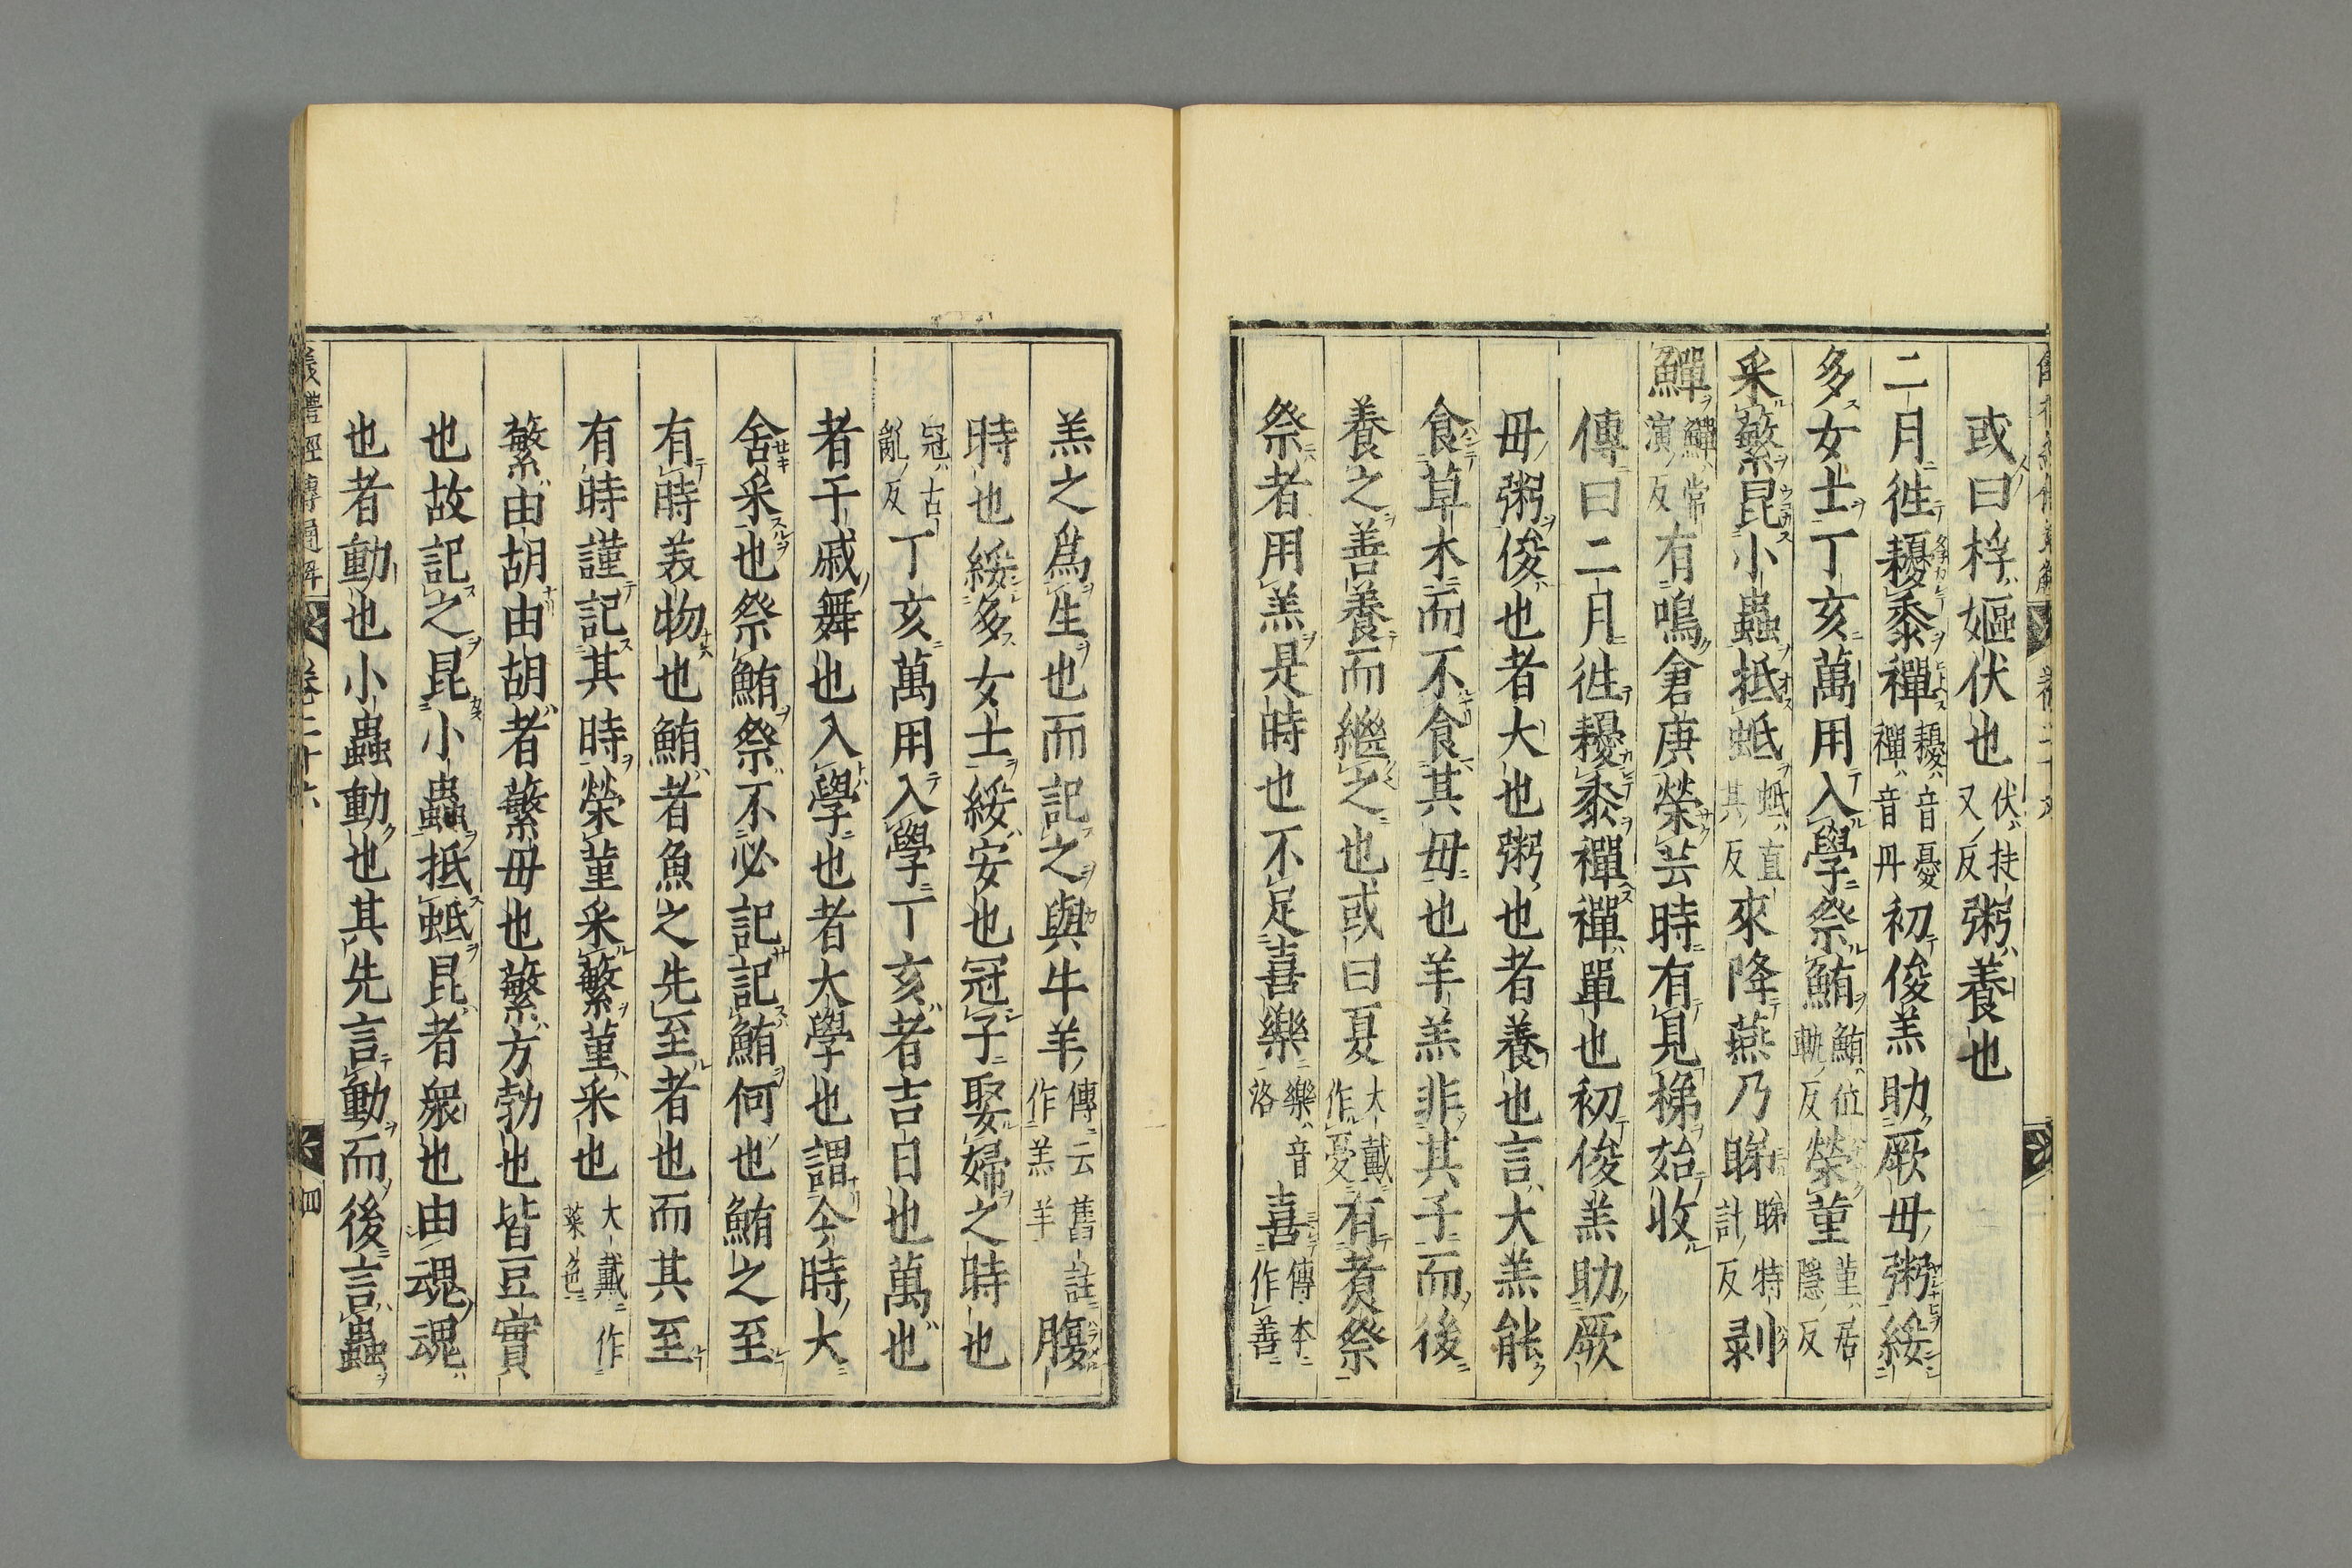 或曰桴嫗伏也伏扶又反粥養也
二月徃耰黍禪耰音憂禪音丹初俊羔助厥毋粥綏
多女士丁亥萬用入學祭鮪鮪位軌反榮菫菫居隱反
采蘩昆小蟲抵蚳蚳直其反來降燕乃睇睇特計反剥
鱓鱓常演反有鳴倉庚榮芸時有見稊始收
傳曰二月徃耰黍禪禪單也初俊羔助厥
毋粥俊也者大也粥也者養也言大羔能
食草木而不食其毋也羊羔非其子而後
養之善養而繼之也或曰夏大戴作憂有煮祭
祭者用羔是時也不足喜樂樂音洛喜傳本作善
羔之爲生也而記之與牛羊傳云舊註作羔羊腹
時也綏多女士綏安也冠子娶婦之時也
冠古亂反丁亥萬用入學丁亥者吉日也萬也
者干戚舞也入學也者大學也謂今時大
舍采也祭鮪祭不必記記鮪何也鮪之至
有時美物也鮪者魚之先至者也而其至
有時謹記其時榮菫采蘩菫采也大戴作菜色
蘩由胡由胡者蘩毋也蘩方勃也皆豆實
也故記之昆小蟲抵蚳昆者衆也由魂魂
也者動也小蟲動也其先言動而後言蟲
儀禮經傳通解 卷二十六 四